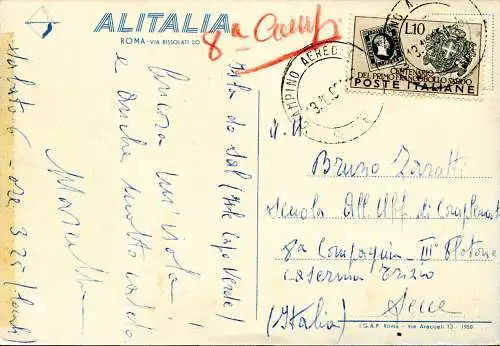 ALITALIA
ROMA - VIA BISSOLATI 20
8ª Comp
CAMPINO AERED
L.10
CENTENARIO
DEL PRIMO FRANCOBOLLO SARDO
POSTE ITALIANE
Isola do Sal (Isole Capo Verde)
Ancora un'isola!
e anche molto caldo
Marcello
Sabato 6 - ore 3.25 (locali)
A
Bruno Zaratti
Scuola All. Uff. di Complemento
8ª Compagnia - III° Plotone
Caserma Trizio
Lecce
(Italia)
I.G.A.P. Roma - Via Aracoeli 13 - 1950